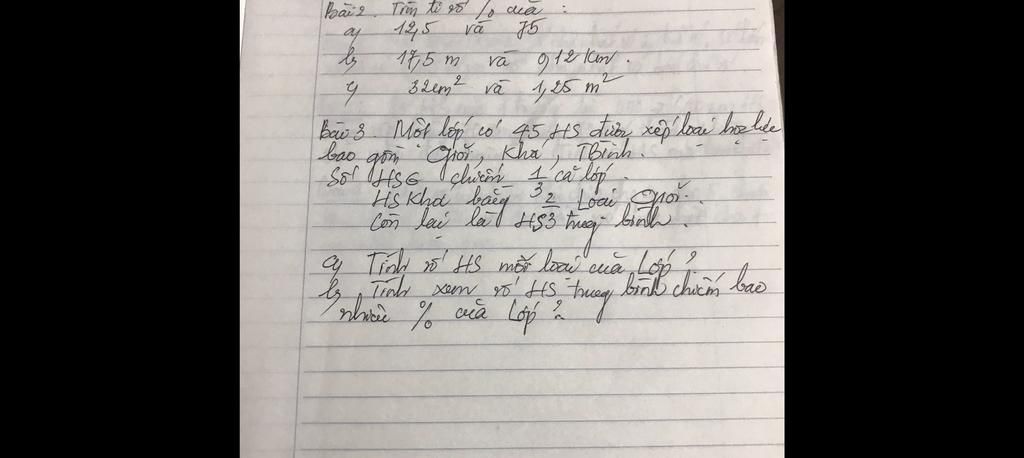 Bài 2. Tìm tỉ số % của :
a, 12,5 và 75
b, 17,5 m và 0,12 Km.
c, 32cm² và 1,25 m²
Bài 3. Một lớp có 45 HS được xếp loại học lực
bao gồm Giỏi, Khá, TBình.
Số HSG chiếm 1/3 cả lớp.
HS Khá bằng 2/3 Loại Giỏi.
Còn lại là HS trung bình.
a, Tính số HS mỗi loại của Lớp ?
b, Tính xem số HS trung bình chiếm bao
nhiêu % của Lớp ?